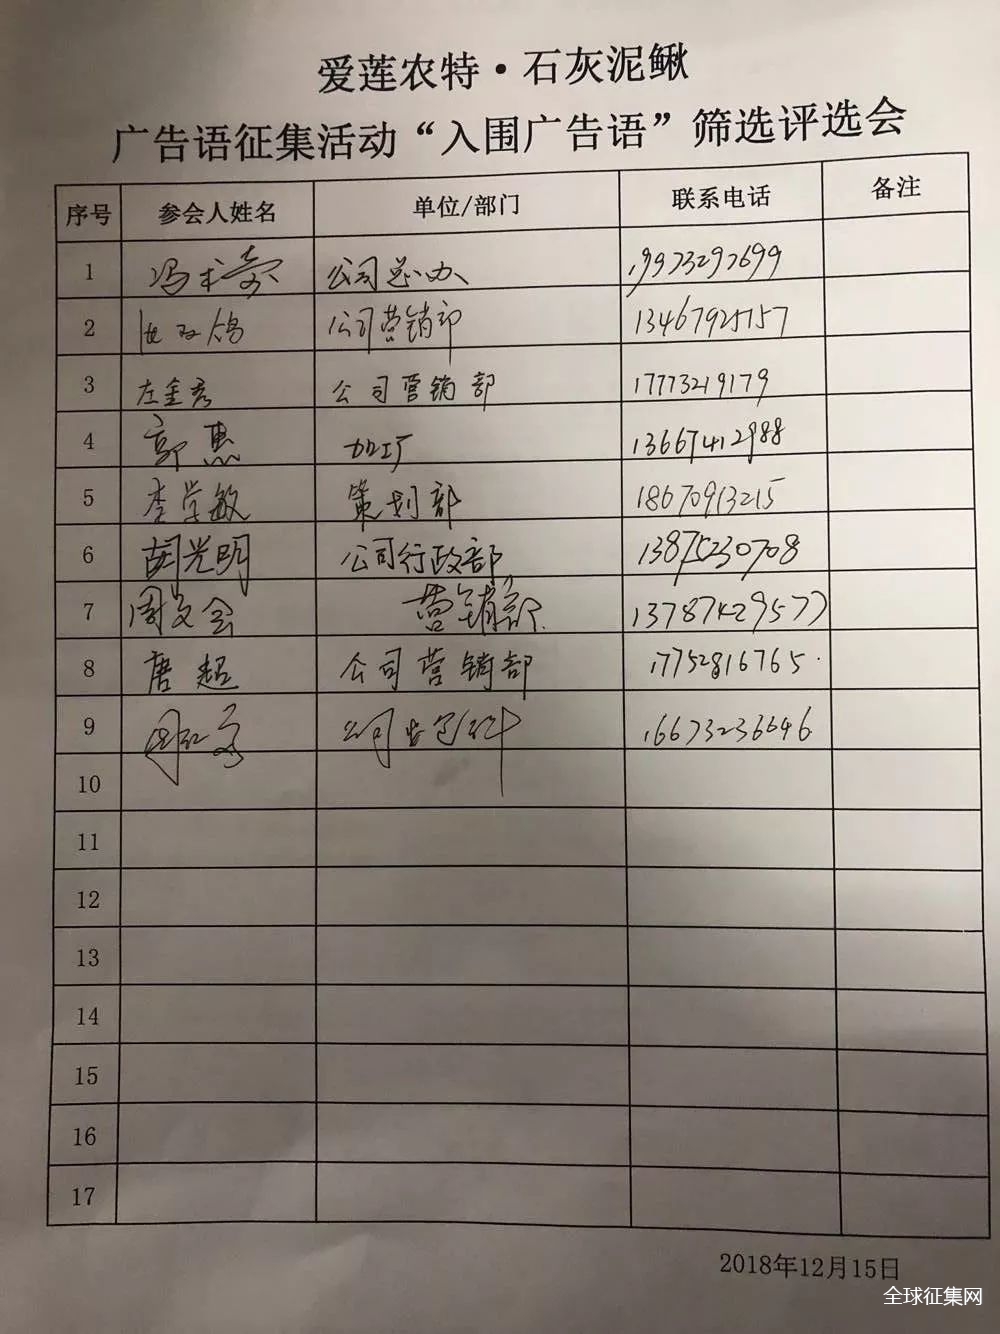 爱莲农特·石灰泥鳅
广告语征集活动“入围广告语”筛选评选会
序号 参会人姓名 单位/部门 联系电话 备注
1 冯 公司总办 19973297699
2 公司营销部 13467925757
3 左金秀 公司营销部 17773219179
4 郭惠 加工厂 13667412988
5 李学敏 策划部 18670913215
6 胡光明 公司行政部 13875230708
7 周文会 营销部 13787429577
8 唐超 公司营销部 17752816765
9 公司 16673236646
10
11
12
13
14
15
16
17
2018年12月15日
全球征集网